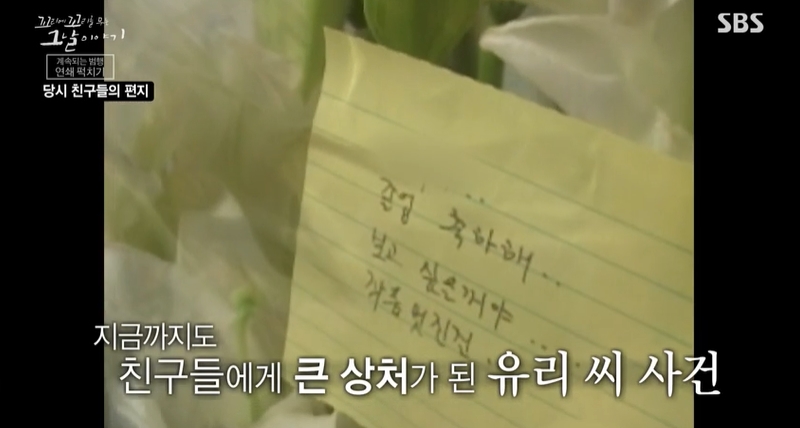 꼬리에 꼬리를 무는
그날 이야기
SBS
계속되는 범행
연쇄 퍽치기
당시 친구들의 편지
졸업 축하해..
보고 싶은거야
작품 멋진걸
지금까지도
친구들에게 큰 상처가 된 유리 씨 사건